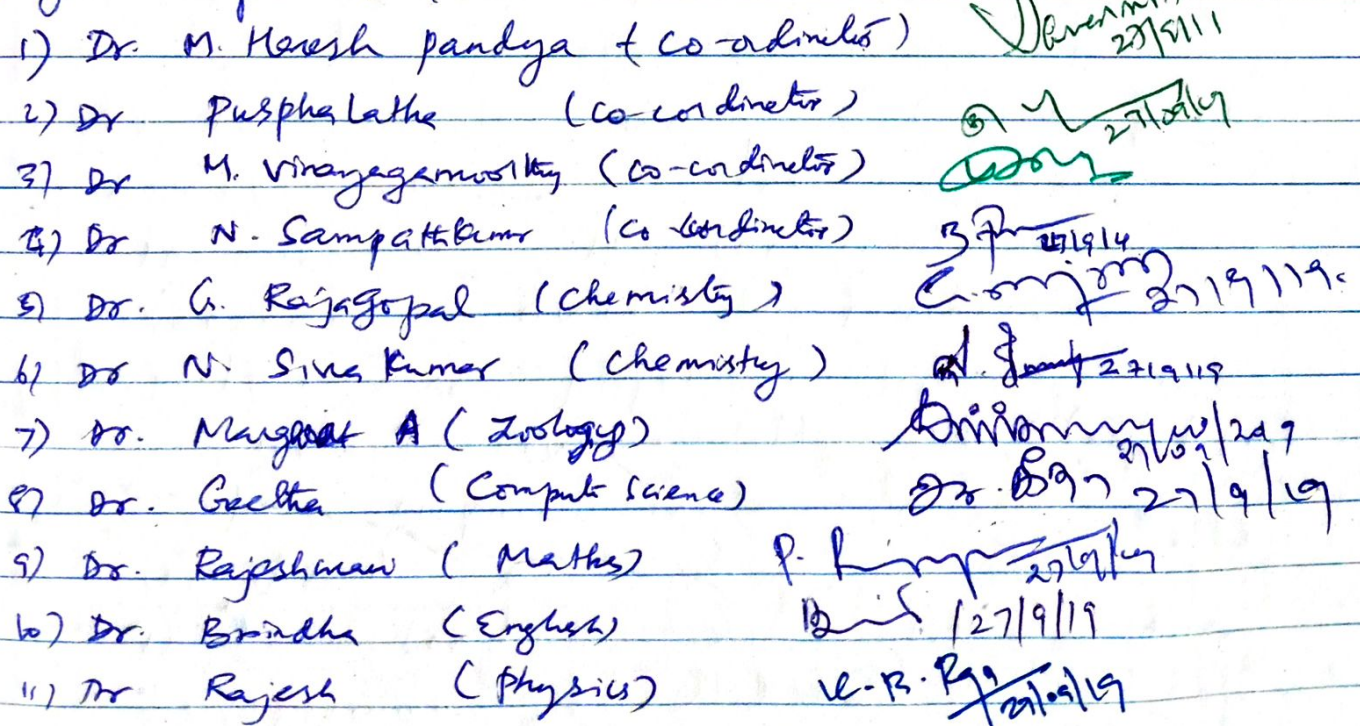 1) Dr. M. Haresh pandya (Co-ordinator) 27/9/11
2) Dr Pusphalatha (Co-cordinator) 27/09/19
3) Dr M. Vinayagamoorthy (co-cordinator)
4) Dr N. Sampathkumar (Co-cordinator) 27/9/19
5) Dr. G. Rajagopal (Chemistry) 27/9/19.
6) Dr N. Siva Kumar (Chemistry) 27/9/19
7) Dr. Margaret A (Zoology)
8) Dr. Geetha (Compute Science) 27/9/19
9) Dr. Rajeshwari (Maths) P. 27/9/19
10) Dr. Brindha (English) 27/9/19
11) Dr Rajesh (Physics) K. R. 27/09/19